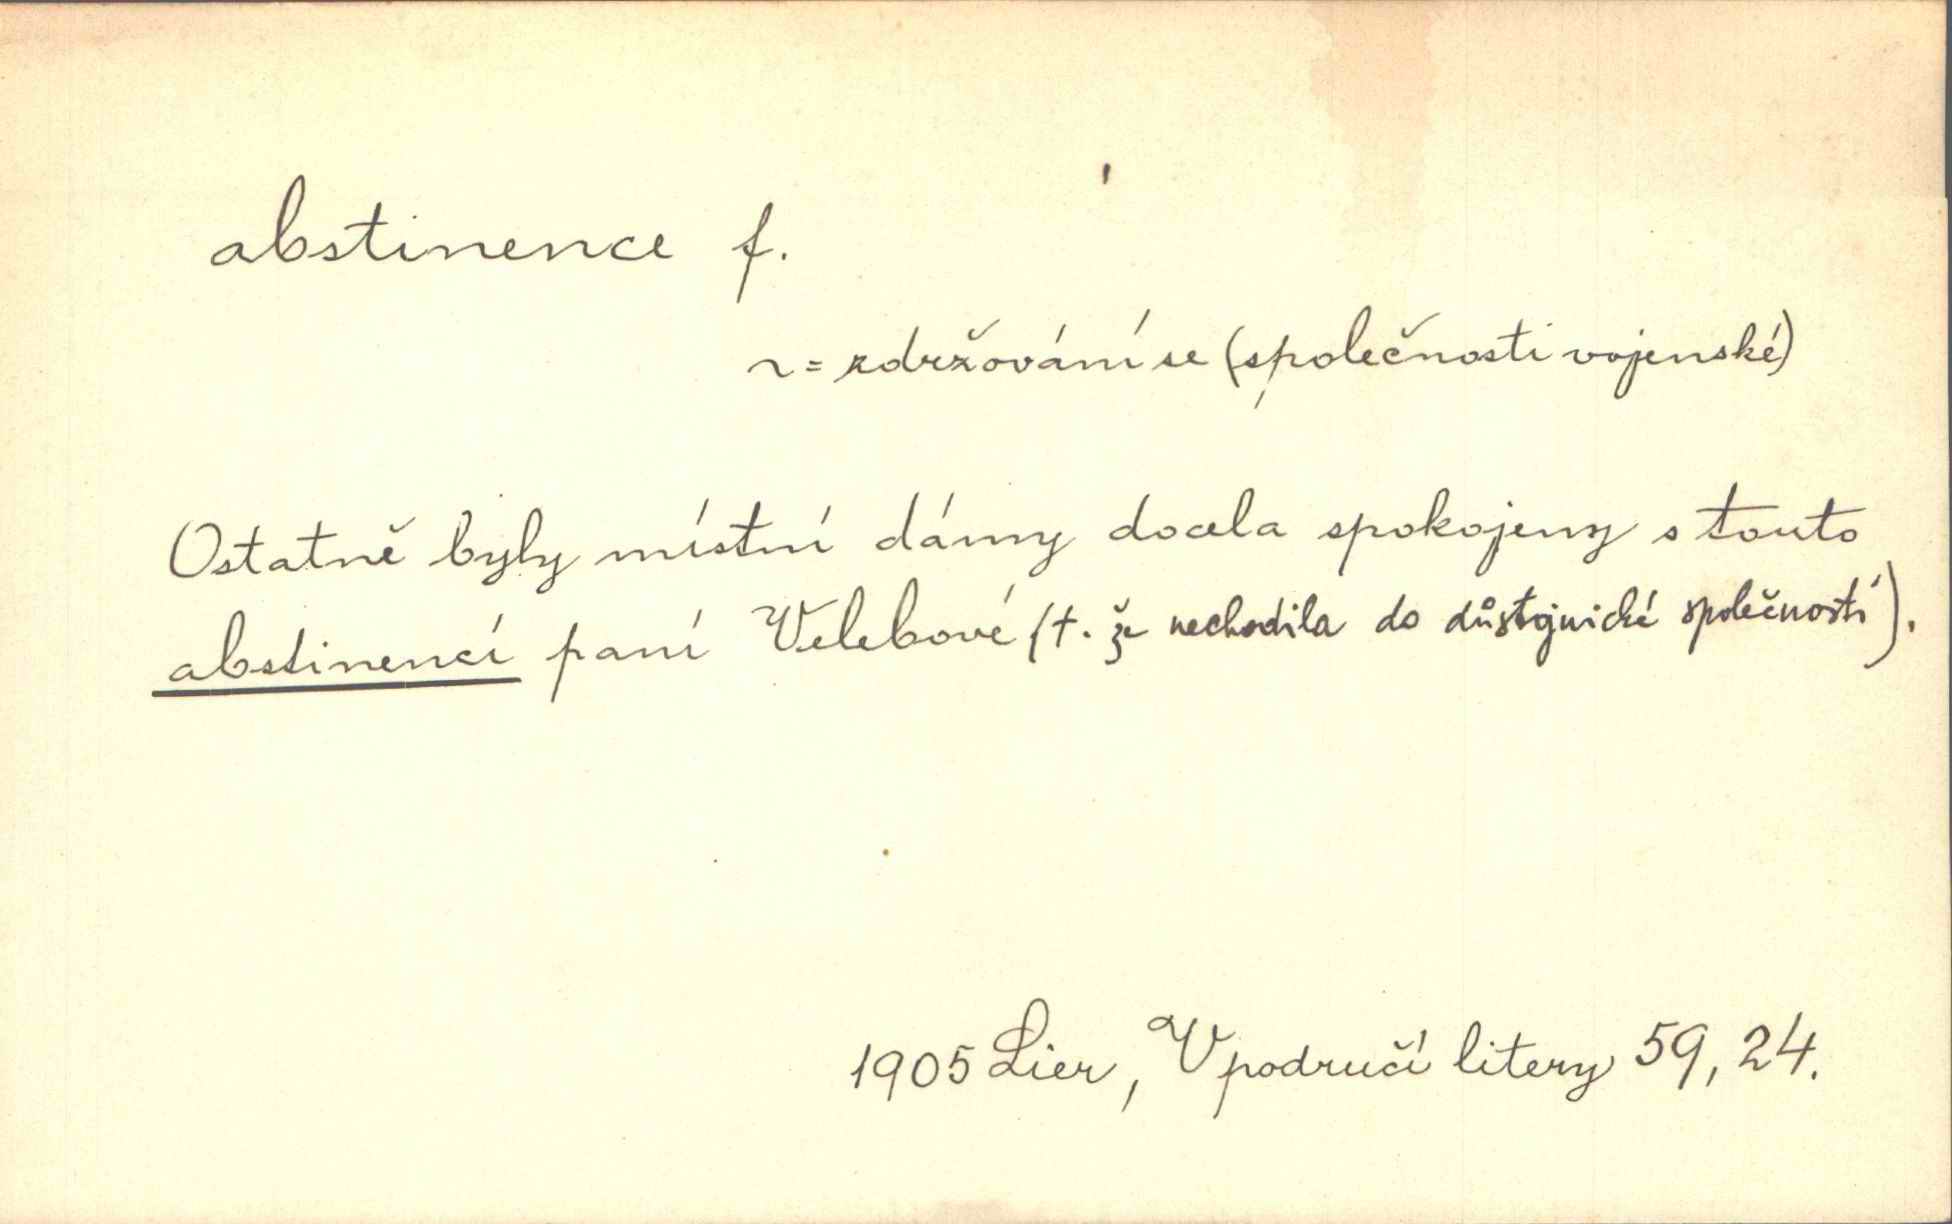 abstinence f.
~ = zdržování se (společnosti vojenské)
Ostatně byly místní dámy docela spokojeny s touto
abstinencí paní Velebové (t. že nechodila do důstojnické společnosti).
1905 Lier, V područí litery 59, 24.